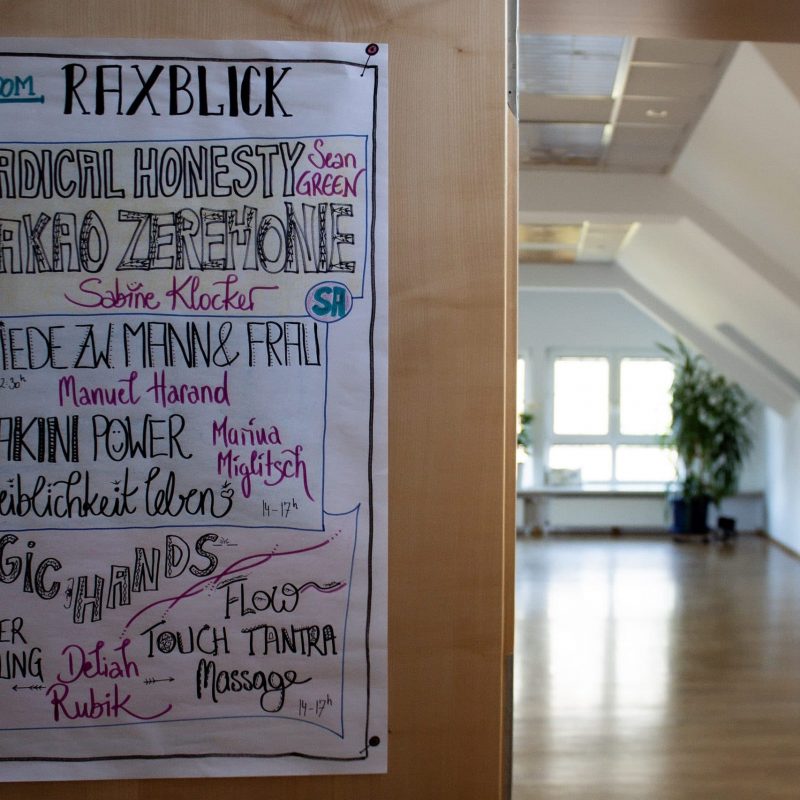 OOM RAXBLICK
ADICAL HONESTY Sean GREEN
AKAO ZEREMONIE
Sabine Klocker
SA
IEDE ZW. MANN & FRAU
2:30h
Manuel Harand
AKINI POWER Marina Miglitsch
eiblichkeit leben 14-17h
GIC HANDS
FLOW
ER TOUCH TANTRA
UNG Deliah Rubik Massage
14-17h